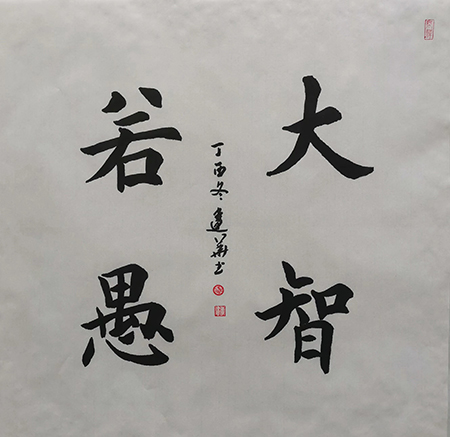 大智
若愚
丁酉冬建华书